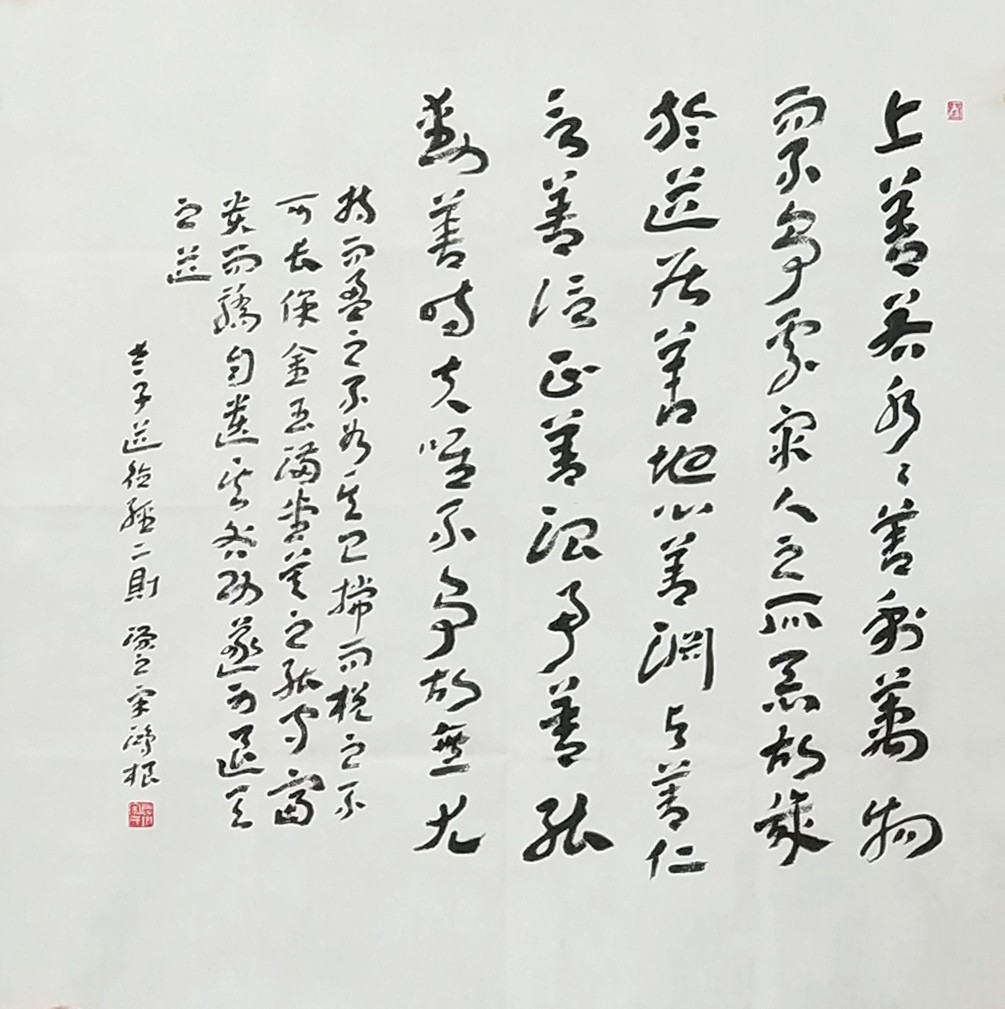 上善若水〻善利萬物
而不爭處衆人之所惡故幾
於道居善地心善淵与善仁
言善信正善治事善能
動善時夫唯不爭故無尤
持而盈之不如其已揣而梲之不
可長保金玉滿堂莫之能守富
貴而驕自遺其咎功遂身退天
之道
老子道德經二則 宋鴻根